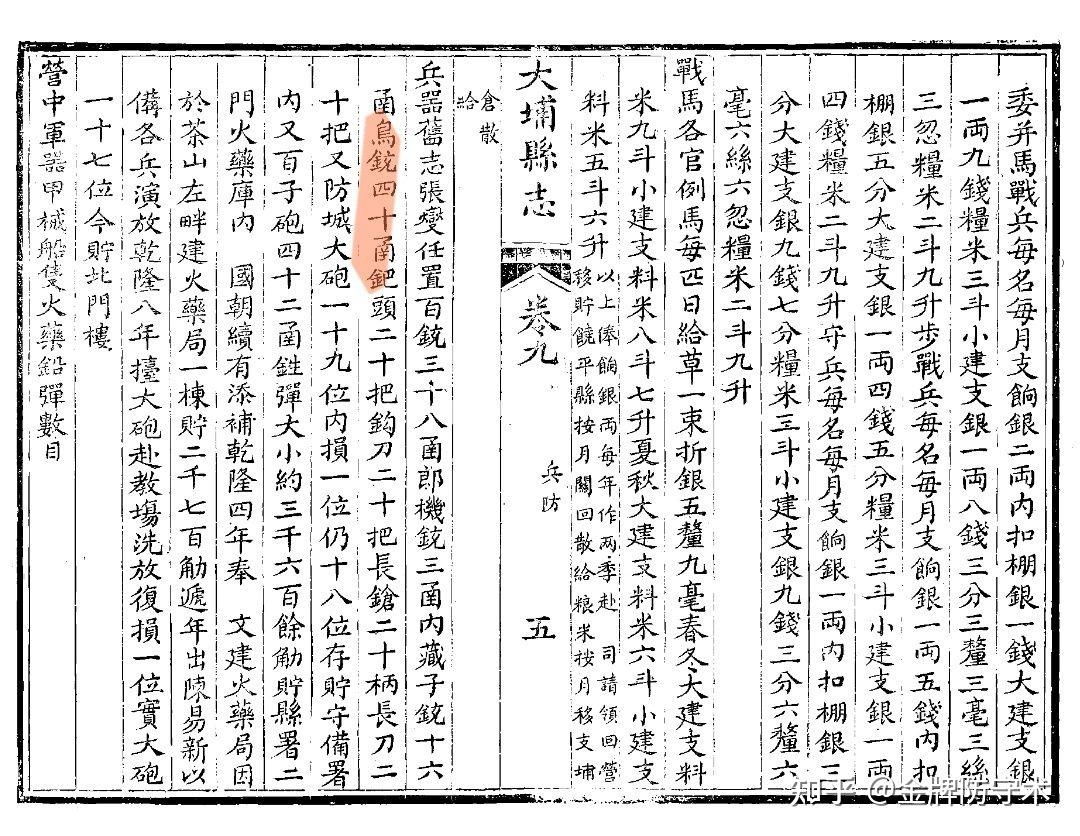 委并馬戰兵每名每月支餉銀二両內扣棚銀一錢大建支銀
一両九錢糧米三斗小建支銀一両八錢三分三釐三毫三絲
三忽糧米二斗九升步戰兵每名每月支餉銀一両五錢內扣
棚銀五分大建支銀一両四錢五分糧米三斗小建支銀一両
四錢糧米二斗九升守兵每名每月支餉銀一両內扣棚銀三
分大建支銀九錢七分糧米三斗小建支銀九錢三分六釐六
毫六絲六忽糧米二斗九升
戰馬各官例馬每匹日給草一束折銀五釐九毫春冬大建支料
米九斗小建支料米八斗七升夏秋大建支料米六斗小建支
料米五斗六升
以上俸餉銀両每年作两季赴 司請領回營
移貯饒平縣按月關回散給粮米按月移支埔
大埔縣志 卷九 兵防 五
倉散
給
兵器舊志張燮任置百銃三十八函郎機銃三函內藏子銃十六
函鳥銃四十函鈀頭二十把鈎刀二十把長鎗二十柄長刀二
十把又防城大砲一十九位內損一位仍十八位存貯守備署
內又百子砲四十二函鉎彈大小約三千六百餘觔貯縣署二
門火藥庫內 國朝續有添補乾隆四年奉 文建火藥局因
於茶山左畔建火藥局一棟貯二千七百觔遞年出陳易新以
備各兵演放乾隆八年擡大砲赴教塲洗放復損一位實大砲
一十七位今貯北門樓
營中軍器甲械船隻火藥鉛彈數目
知乎 @金牌防守木